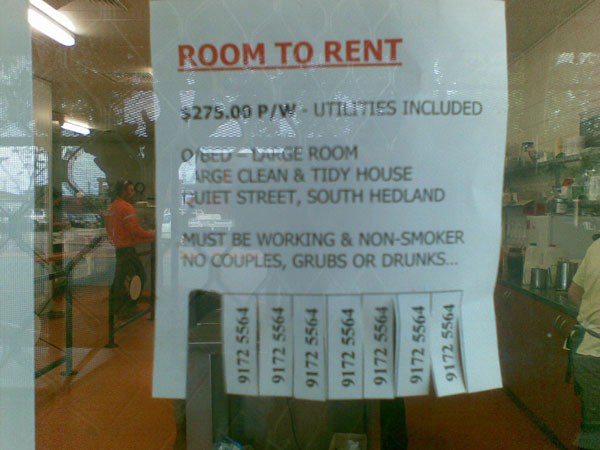 ROOM TO RENT
$275.00 P/W - UTILITIES INCLUDED
Q/BED – LARGE ROOM
LARGE CLEAN & TIDY HOUSE
QUIET STREET, SOUTH HEDLAND
MUST BE WORKING & NON-SMOKER
NO COUPLES, GRUBS OR DRUNKS...
9172 5564
9172 5564
9172 5564
9172 5564
9172 5564
9172 5564
9172 5564